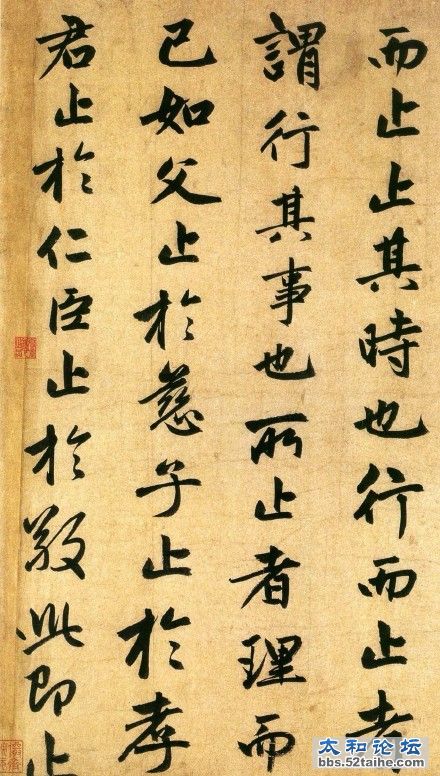 而止止其時也行而止者
謂行其事也所止者理而
已如父止於慈子止於孝
君止於仁臣止於敬此即止
太和论坛
bbs.52taihe.com